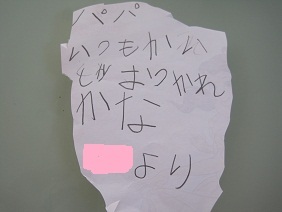 パパ
いつもかい
しゃおつかれ
かな
より